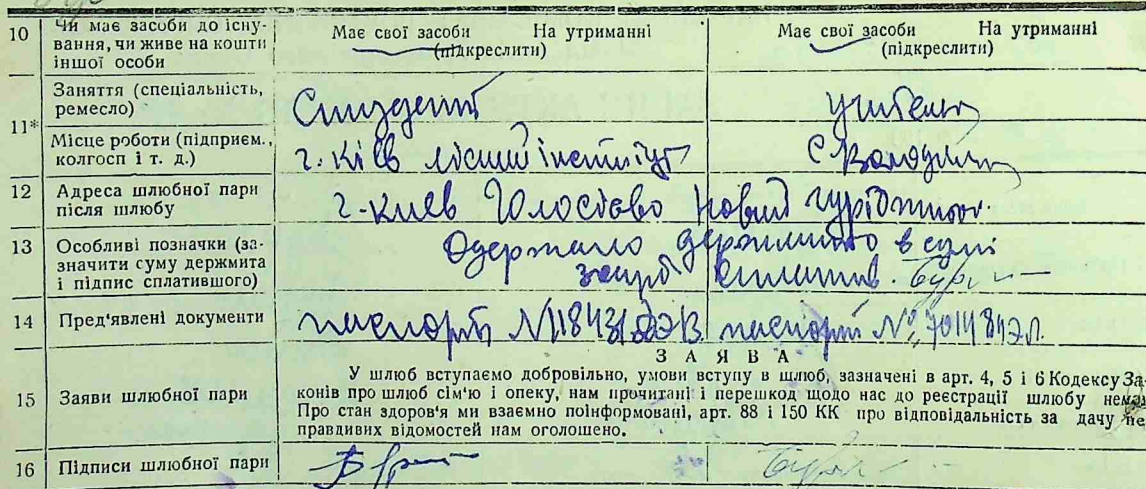 10 Чи має засоби до існу-
вання, чи живе на кошти
іншої особи
Має свої засоби На утриманні
(підкреслити)
Має свої засоби На утриманні
(підкреслити)
11* Заняття (спеціальність,
ремесло)
Студент
учитель
Місце роботи (підприєм.,
колгосп і т. д.)
г. Київ лісний інститут
с
12 Адреса шлюбної пари
після шлюбу
г. Киев Новий
13 Особливі позначки (за-
значити суму держмита
і підпис сплатившого)
Одержано держмито в сумі
14 Пред'явлені документи
паспорт № паспорт №
ЗАЯВА
15 Заяви шлюбної пари
У шлюб вступаємо добровільно, умови вступу в шлюб, зазначені в арт. 4, 5 і 6 Кодексу За-
конів про шлюб сім'ю і опеку, нам прочитані і перешкод щодо нас до реєстрації шлюбу немає
Про стан здоров'я ми взаємно поінформовані, арт. 88 і 150 КК про відповідальність за дачу не-
правдивих відомостей нам оголошено.
16 Підписи шлюбної пари